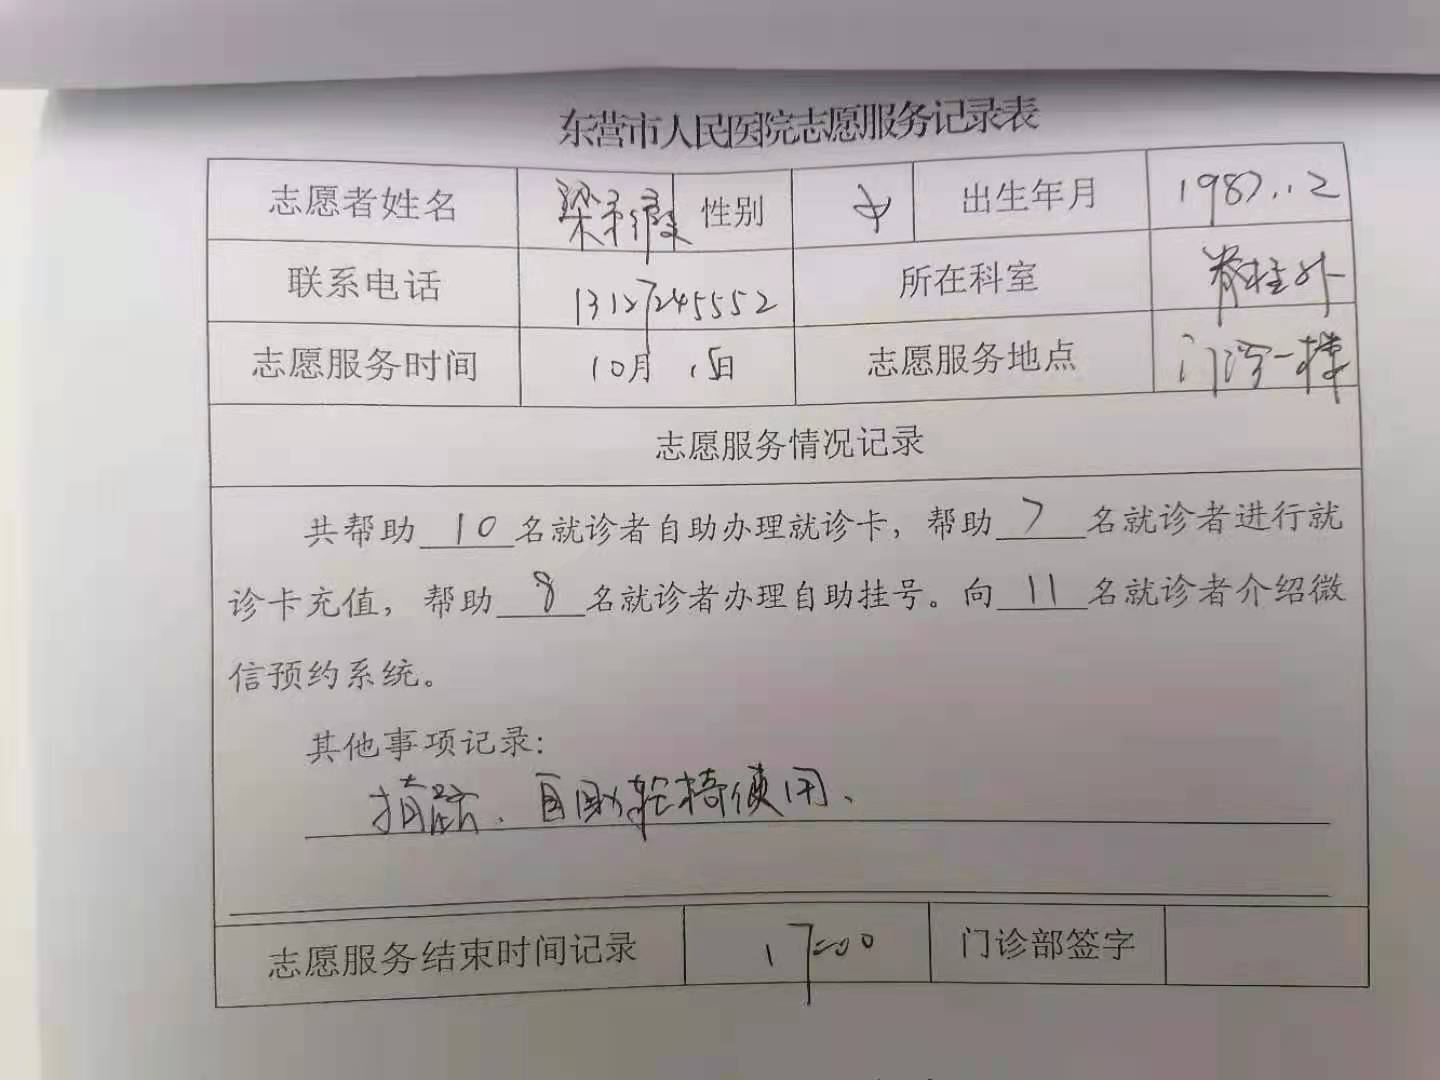 东营市人民医院志愿服务记录表
志愿者姓名 梁 性别 女 出生年月 1987.12
联系电话 13127245552 所在科室 脊柱外
志愿服务时间 10月15日 志愿服务地点 门诊一楼
志愿服务情况记录
共帮助 10 名就诊者自助办理就诊卡，帮助 7 名就诊者进行就
诊卡充值，帮助 8 名就诊者办理自助挂号。向 11 名就诊者介绍微
信预约系统。
其他事项记录：
指路、自助轮椅使用、
志愿服务结束时间记录 17:00 门诊部签字